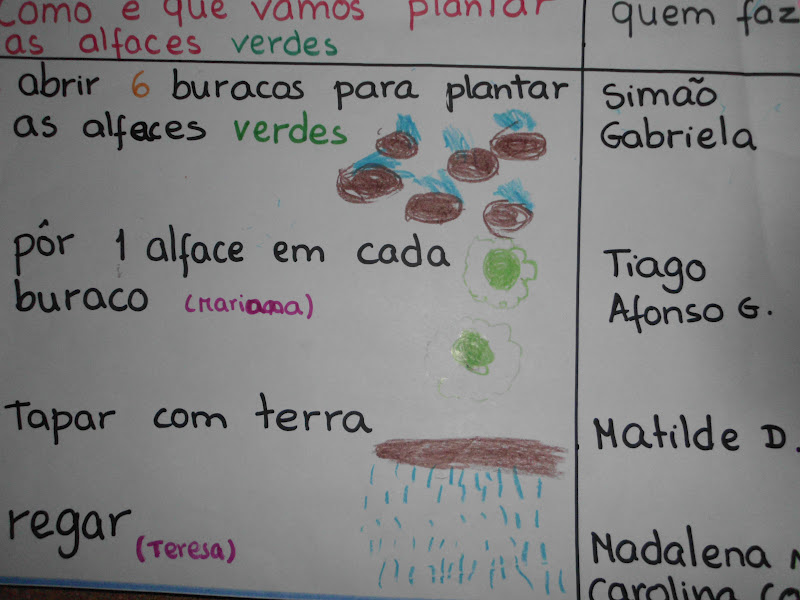 como é que vamos plantar
as alfaces verdes
quem faz
abrir 6 buracos para plantar
as alfaces verdes
Simão
Gabriela
pôr 1 alface em cada
buraco (Mariana)
Tiago
Afonso G.
Tapar com terra
Matilde D.
regar
(Teresa)
Madalena
Carolina